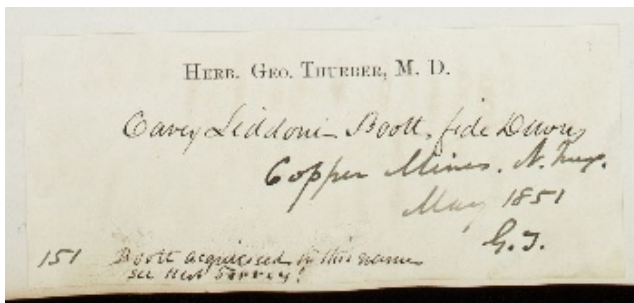 Herb. Geo. Thurber, M. D.
Carex Liddoni Boott, fide Dewey
Copper Mines. N. Mex.
May 1851
G. T.
151 Boott acquiesced in this name
see Herb Torrey!